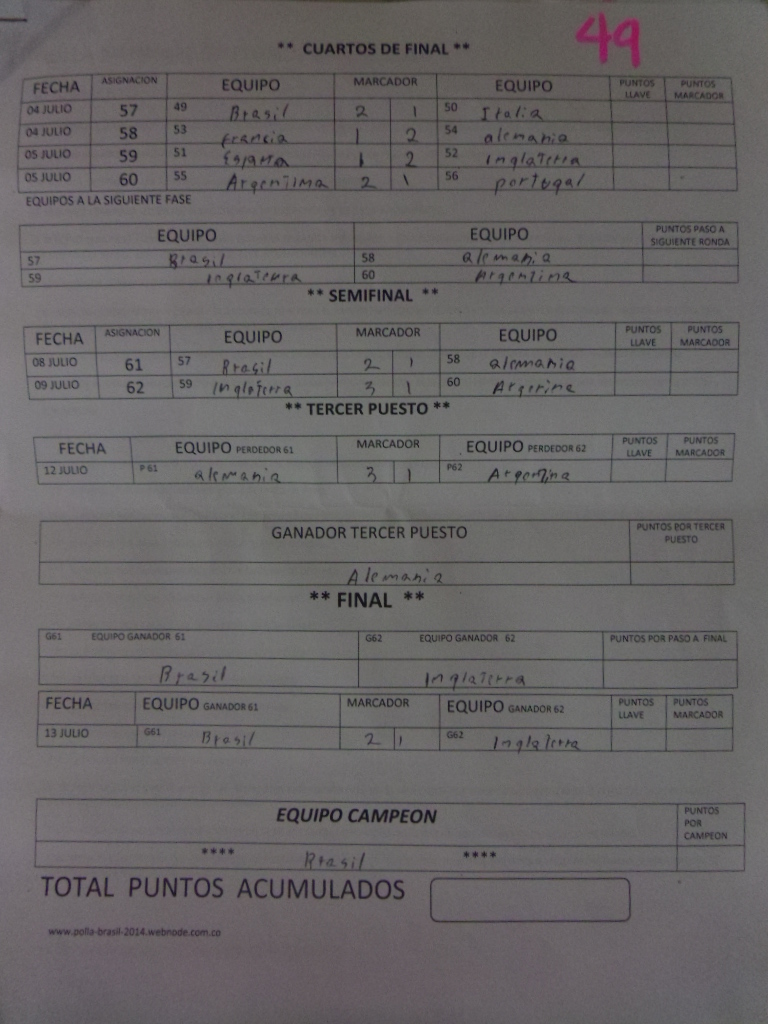 49
** CUARTOS DE FINAL **
FECHA ASIGNACION EQUIPO MARCADOR EQUIPO PUNTOS LLAVE PUNTOS MARCADOR
04 JULIO 57 49 Brasil 2 1 50 Italia
04 JULIO 58 53 Francia 1 2 54 alemania
05 JULIO 59 51 España 1 2 52 Inglaterra
05 JULIO 60 55 Argentima 2 1 56 portugal
EQUIPOS A LA SIGUIENTE FASE
EQUIPO EQUIPO PUNTOS PASO A SIGUIENTE RONDA
57 Brasil 58 alemania
59 Inglaterra 60 Argentina
** SEMIFINAL **
FECHA ASIGNACION EQUIPO MARCADOR EQUIPO PUNTOS LLAVE PUNTOS MARCADOR
08 JULIO 61 57 Brasil 2 1 58 alemania
09 JULIO 62 59 Inglaterra 3 1 60 Argerina
** TERCER PUESTO **
FECHA EQUIPO PERDEDOR 61 MARCADOR EQUIPO PERDEDOR 62 PUNTOS LLAVE PUNTOS MARCADOR
12 JULIO P 61 alemania 3 1 P62 Argentina
GANADOR TERCER PUESTO PUNTOS POR TERCER PUESTO
Alemania
** FINAL **
G61 EQUIPO GANADOR 61 G62 EQUIPO GANADOR 62 PUNTOS POR PASO A FINAL
Brasil Inglaterra
FECHA EQUIPO GANADOR 61 MARCADOR EQUIPO GANADOR 62 PUNTOS LLAVE PUNTOS MARCADOR
13 JULIO G61 Brasil 2 1 G62 Inglaterra
EQUIPO CAMPEON PUNTOS POR CAMPEON
**** Brasil ****
TOTAL PUNTOS ACUMULADOS
www.polla-brasil-2014.webnode.com.co